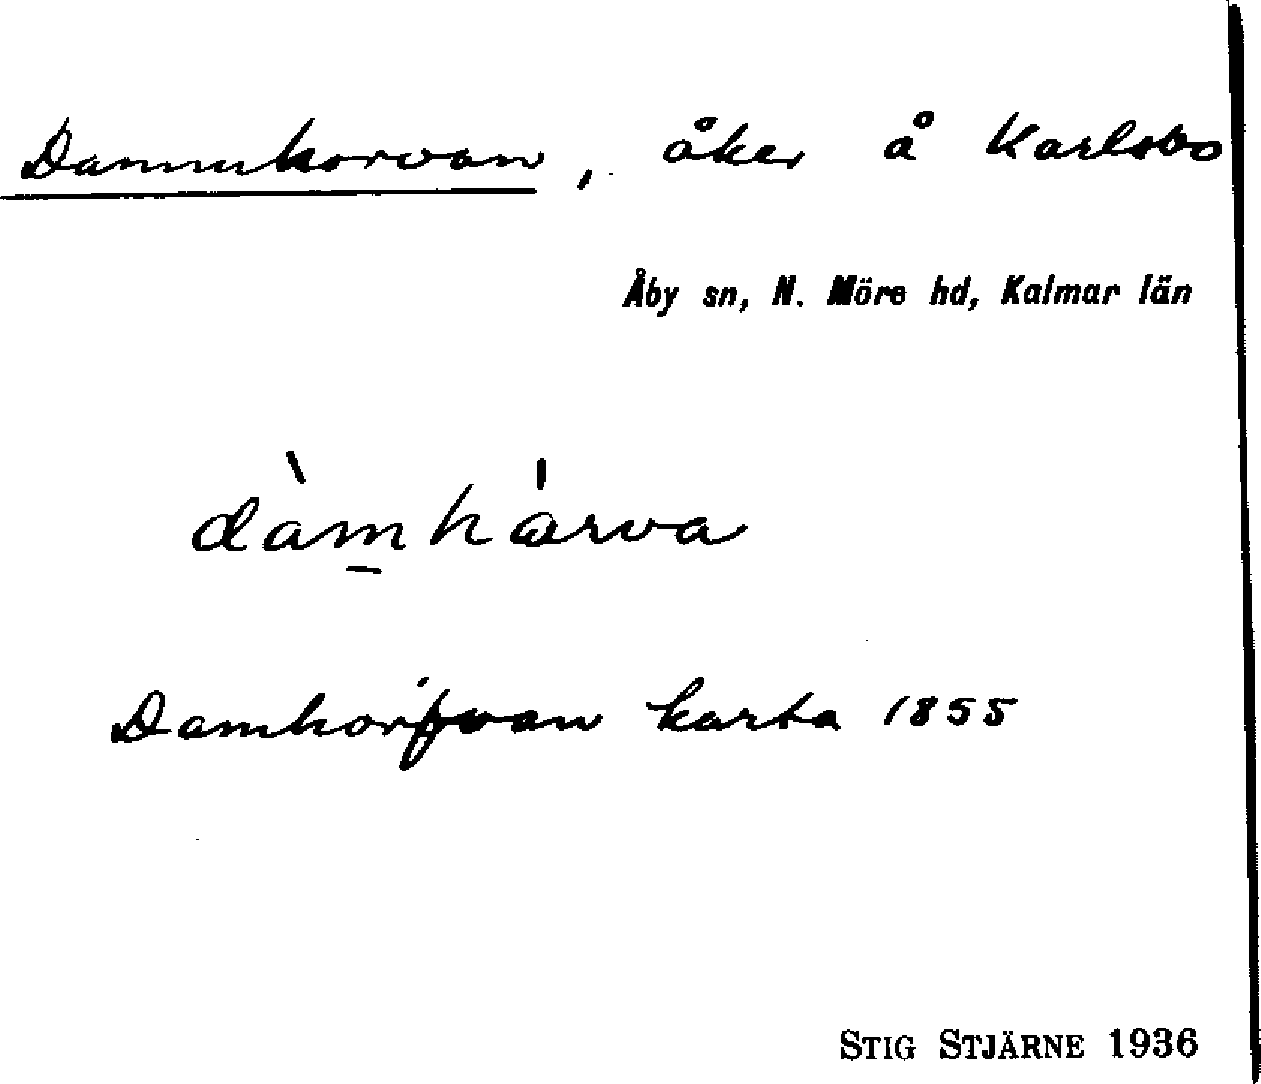 Dammkorvan, åker å Karlsbo
Åby sn, N. Möre hd, Kalmar län
dàm̲hårva
Damhorfvan karta 1855
STIG STJÄRNE 1936